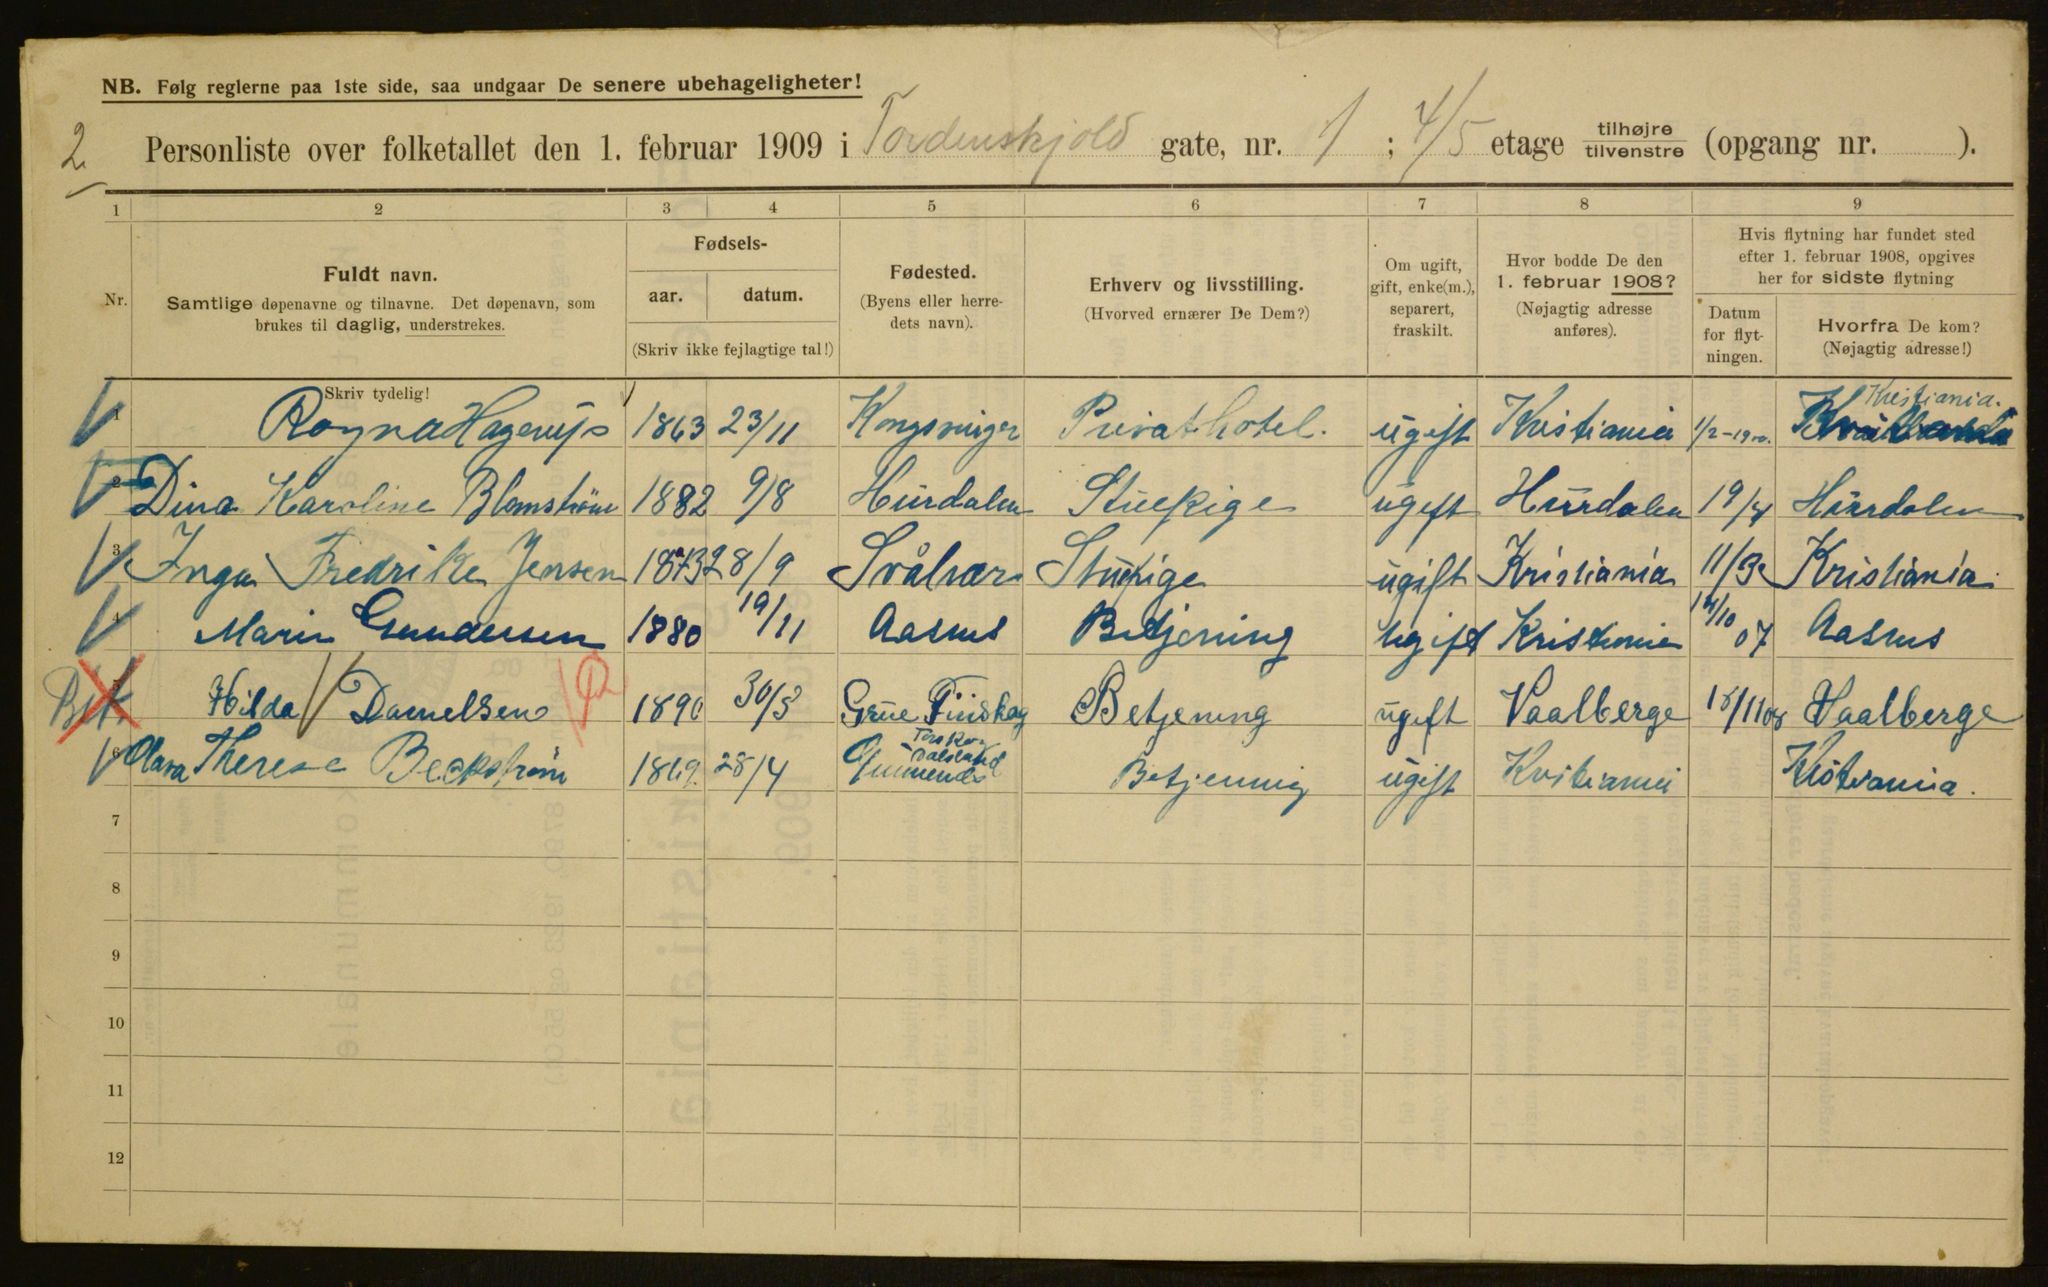 NB. Følg reglerne paa 1ste side, saa undgaar De senere ubehageligheter!
2 Personliste over folketallet den 1. februar 1909 i Tordenskjold gate, nr. 1 ; 4/5 etage tilhøjre tilvenstre (opgang nr. ).
1 2 3 4 5 6 7 8 9
Nr.
Fuldt navn.
Samtlige døpenavne og tilnavne. Det døpenavn, som
brukes til daglig, understrekes.
Fødsels-
aar. datum.
(Skriv ikke fejlagtige tal!)
Fødested.
(Byens eller herre-
dets navn).
Erhverv og livsstilling.
(Hvorved ernærer De Dem?)
Om ugift,
gift, enke(m.),
separert,
fraskilt.
Hvor bodde De den
1. februar 1908?
(Nøjagtig adresse
anføres).
Hvis flytning har fundet sted
efter 1. februar 1908, opgives
her for sidste flytning
Datum
for flyt-
ningen.
Hvorfra De kom?
(Nøjagtig adresse!)
Skriv tydelig!
1 Ragna Hagerup 1863 23/11 Kongsvinger Privathotel. ugift Kristiania 1/2-19 Kristiania.
2 Dina Karoline Blomstrøm 1882 9/8 Hurdalen Stuepige ugift Hurdalen 19/4 Hurdalen
3 Inga Fredrike Jensen 1873 28/9 Svålvær Stuepige ugift Kristiania 11/3 Kristiania
4 Marie Gundersen 1880 19/11 Aasnes Betjening ugift Kristiania 14/10 07 Aasnes
5 Hilda Danielsen 1890 30/3 Grue Finskog Betjening ugift Vaalberge 18/11 08 Vaalberge
6 Clara Therese Beckstrøm 1869. 28/4 Dalsland Betjening ugift Kristiania Kristiania.
7
8
9
10
11
12